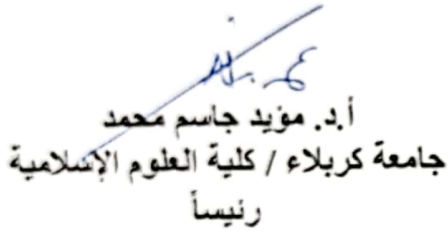 أ.د. مؤيد جاسم محمد
جامعة كربلاء / كلية العلوم الإسلامية
رئيساً